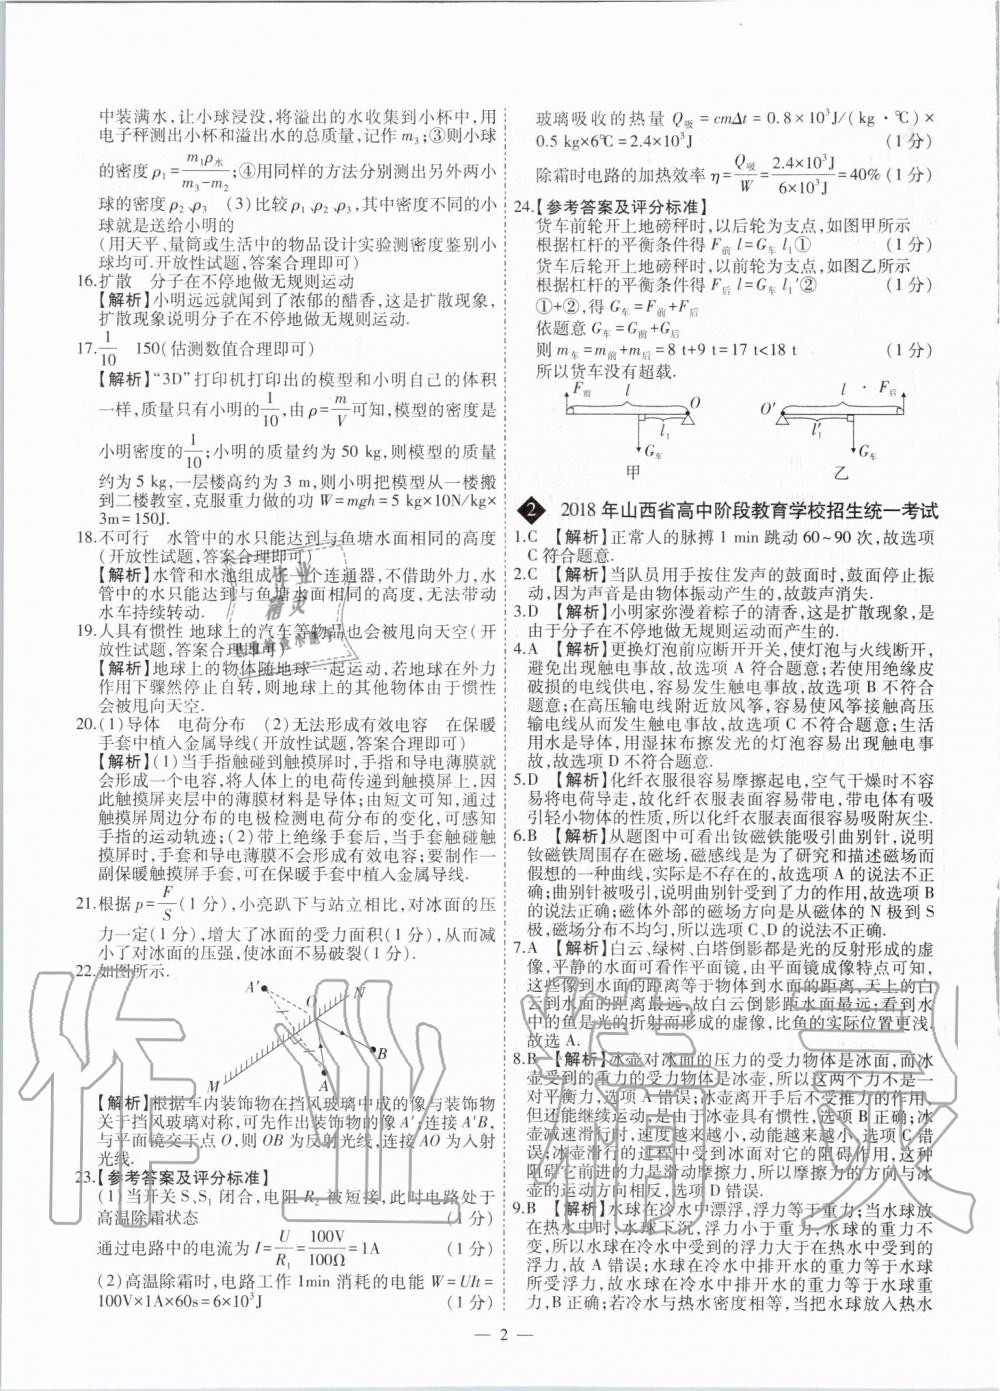 中装满水,让小球浸没,将溢出的水收集到小杯中,用
电子秤测出小杯和溢出水的总质量,记作 m₃;③则小球
的密度 ρ₁=m₁ρ水/(m₃-m₂);④用同样的方法分别测出另外两小
球的密度 ρ₂、ρ₃ (3)比较 ρ₁、ρ₂、ρ₃,其中密度不同的小
球就是送给小明的
(用天平、量筒或生活中的物品设计实验测密度鉴别小
球均可.开放性试题,答案合理即可)
16.扩散 分子在不停地做无规则运动
【解析】小明远远就闻到了浓郁的醋香,这是扩散现象,
扩散现象说明分子在不停地做无规则运动.
17.1/10 150(估测数值合理即可)
【解析】“3D”打印机打印出的模型和小明自己的体积
一样,质量只有小明的1/10,由 ρ=m/V可知,模型的密度是
小明密度的1/10;小明的质量约为 50 kg,则模型的质量
约为 5 kg,一层楼高约为 3 m,则小明把模型从一楼搬
到二楼教室,克服重力做的功 W=mgh=5 kg×10N/kg×
3m=150J.
18.不可行 水管中的水只能达到与鱼塘水面相同的高度
(开放性试题,答案合理即可)
【解析】水管和水池组成了一个连通器,不借助外力,水
管中的水只能达到与鱼塘水面相同的高度,无法带动
水车持续转动.
19.人具有惯性 地球上的汽车等物品也会被甩向天空(开
放性试题,答案合理即可)
【解析】地球上的物体随地球一起运动,若地球在外力
作用下骤然停止自转,则地球上的其他物体由于惯性
会被甩向天空.
20.(1)导体 电荷分布 (2)无法形成有效电容 在保暖
手套中植入金属导线(开放性试题,答案合理即可)
【解析】(1)当手指触碰到触摸屏时,手指和导电薄膜就
会形成一个电容,将人体上的电荷传递到触摸屏上,因
此触摸屏夹层中的薄膜材料是导体;由短文可知,通过
触摸屏周边分布的电极检测电荷分布的变化,可感知
手指的运动轨迹;(2)带上绝缘手套后,当手套触碰触
摸屏时,手套和导电薄膜不会形成有效电容;要制作一
副保暖触摸屏手套,可在保暖手套中植入金属导线.
21.根据 p=F/S(1 分),小亮趴下与站立相比,对冰面的压
力一定(1 分),增大了冰面的受力面积(1 分),从而减
小了对冰面的压强,使冰面不易破裂(1 分).
22.如图所示.
A′
O
N
B
M
A
【解析】根据车内装饰物在挡风玻璃中成的像与装饰物
关于挡风玻璃对称,可先作出装饰物的像 A′,连接 A′B,
与平面镜交于点 O,则 OB 为反射光线,连接 AO 为入射
光线.
23.【参考答案及评分标准】
(1)当开关 S、S₁ 闭合,电阻 R₂ 被短接,此时电路处于
高温除霜状态 (1 分)
通过电路中的电流为 I=U/R₁=100V/100Ω=1A (1 分)
(2)高温除霜时,电路工作 1min 消耗的电能 W=UIt=
100V×1A×60s=6×10³J (1 分)
玻璃吸收的热量 Q吸=cmΔt=0.8×10³J/(kg·℃)×
0.5 kg×6℃=2.4×10³J (1 分)
除霜时电路的加热效率 η=Q吸/W=2.4×10³J/6×10³J=40%(1 分)
24.【参考答案及评分标准】
货车前轮开上地磅秤时,以后轮为支点,如图甲所示
根据杠杆的平衡条件得 F前 l=G车 l₁① (1 分)
货车后轮开上地磅秤时,以前轮为支点,如图乙所示
根据杠杆的平衡条件得 F后 l=G车 l₁′② (1 分)
①+②,得 G车=F前+F后
依题意 G车=G前+G后
则 m车=m前+m后=8 t+9 t=17 t<18 t (1 分)
所以货车没有超载.
F前 l O l₁ G车 甲
O′ l F后 l₁′ G车 乙
2 2018 年山西省高中阶段教育学校招生统一考试
1.C 【解析】正常人的脉搏 1 min 跳动 60~90 次,故选项
C 符合题意.
2.C 【解析】当队员用手按住发声的鼓面时,鼓面停止振
动,因为声音是由物体振动产生的,故鼓声消失.
3.D 【解析】小明家弥漫着粽子的清香,这是扩散现象,是
由于分子在不停地做无规则运动而产生的.
4.A 【解析】更换灯泡前应断开开关,使灯泡与火线断开,
避免出现触电事故,故选项 A 符合题意;若使用绝缘皮
破损的电线供电,容易发生触电事故,故选项 B 不符合
题意;在高压输电线附近放风筝,容易使风筝接触高压
输电线从而发生触电事故,故选项 C 不符合题意;生活
用水是导体,用湿抹布擦发光的灯泡容易出现触电事
故,故选项 D 不符合题意.
5.D 【解析】化纤衣服很容易摩擦起电,空气干燥时不容
易将电荷导走,故化纤衣服表面容易带电,带电体有吸
引轻小物体的性质,所以化纤衣服表面很容易吸附灰尘.
6.B 【解析】从题图中可看出钕磁铁能吸引曲别针,说明
钕磁铁周围存在磁场,磁感线是为了研究和描述磁场而
假想的一种曲线,实际是不存在的,故选项 A 的说法不正
确;曲别针被吸引,说明曲别针受到了力的作用,故选项 B
的说法正确;磁体外部的磁场方向是从磁体的 N 极到 S
极,磁场分布不均匀,所以选项 C、D 的说法不正确.
7.A 【解析】白云、绿树、白塔倒影都是光的反射形成的虚
像,平静的水面可看作平面镜,由平面镜成像特点可知,
这些像到水面的距离等于物体到水面的距离,天上的白
云到水面的距离最远,故白云倒影距水面最远;看到水
中的鱼是光的折射而形成的虚像,比鱼的实际位置更浅.
故选 A.
8.B 【解析】冰壶对冰面的压力的受力物体是冰面,而冰
壶受到的重力的受力物体是冰壶,所以这两个力不是一
对平衡力,选项 A 错误;冰壶离开手后不受推力的作用,
但还能继续运动,是由于冰壶具有惯性,选项 B 正确;冰
壶减速滑行时,速度越来越小,动能越来越小,选项 C 错
误;冰壶滑行的过程中受到冰面对它的阻碍作用,这种
阻碍它前进的力是滑动摩擦力,所以摩擦力的方向与冰
壶的运动方向相反,选项 D 错误.
9.B 【解析】水球在冷水中漂浮,浮力等于重力;当水球放
在热水中时,水球下沉,浮力小于重力,水球的重力不
变,所以水球在冷水中受到的浮力大于在热水中受到的
浮力,故 A 错误;水球在冷水中受到的浮力等于水球
所受浮力,故水球在冷水中排开水的重力等于水球重
力,B 正确;若冷水与热水密度相等,当把水球放入热水
— 2 —
作业精灵